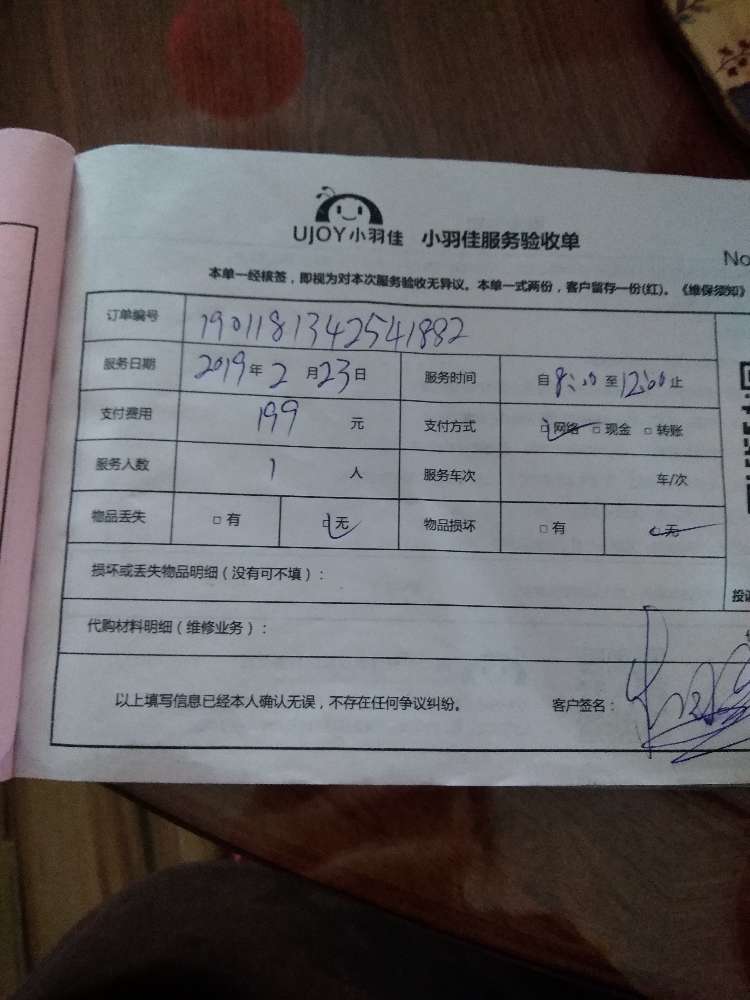 UJOY小羽佳 小羽佳服务验收单
No
本单一经核签，即视为对本次服务验收无异议。本单一式两份，客户留存一份(红)。《维保须知》
订单编号 1901181342541882
服务日期 2019年2月23日 服务时间 自8:00至12:00止
支付费用 199元 支付方式 网络 现金 转账
服务人数 1人 服务车次 车/次
物品丢失 有 无 物品损坏 有 无
损坏或丢失物品明细（没有可不填）：
投诉
代购材料明细（维修业务）：
以上填写信息已经本人确认无误，不存在任何争议纠纷。 客户签名：